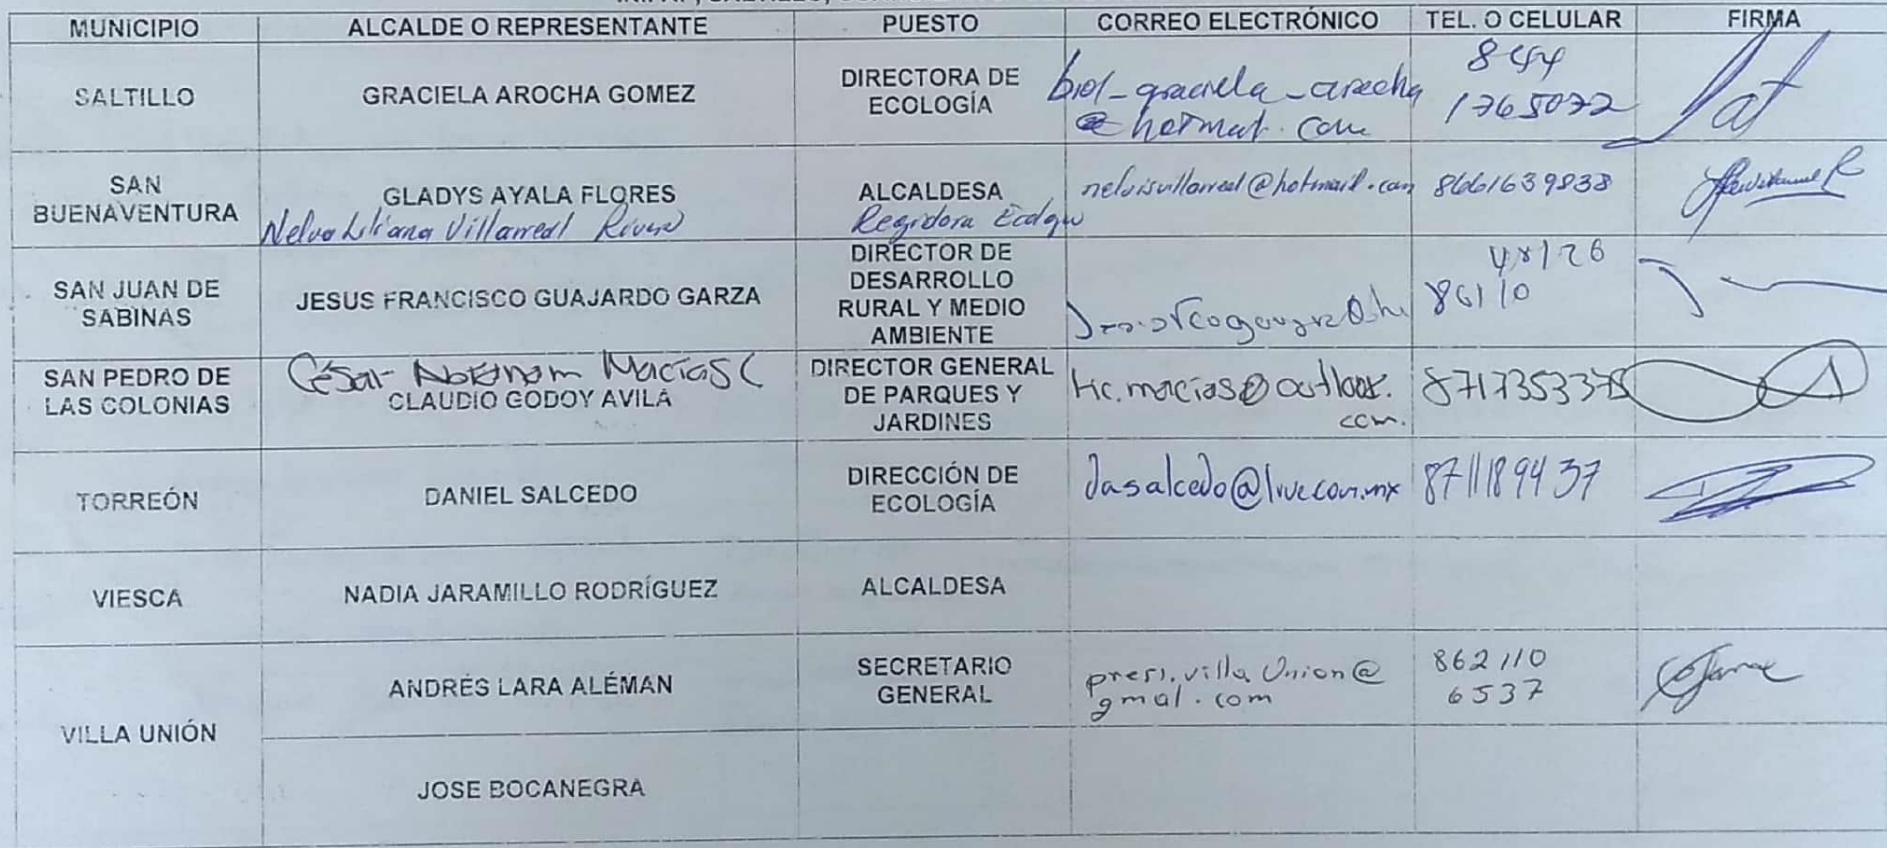 MUNICIPIO ALCALDE O REPRESENTANTE PUESTO CORREO ELECTRÓNICO TEL. O CELULAR FIRMA
SALTILLO GRACIELA AROCHA GOMEZ DIRECTORA DE ECOLOGÍA biol_graciela_arocha 844
@hotmail.com 1765072
SAN BUENAVENTURA GLADYS AYALA FLORES ALCALDESA nelvisvillarreal@hotmail.com 8661639838
Nelva Liliana Villarreal Rivera Regidora
SAN JUAN DE SABINAS JESUS FRANCISCO GUAJARDO GARZA DIRECTOR DE DESARROLLO RURAL Y MEDIO AMBIENTE 86110
SAN PEDRO DE LAS COLONIAS César Abraham Macías C DIRECTOR GENERAL DE PARQUES Y JARDINES tic.macias@outlook.com.
CLAUDIO GODOY AVILA
TORREÓN DANIEL SALCEDO DIRECCIÓN DE ECOLOGÍA dasalcedo@live.com.mx 8711189437
VIESCA NADIA JARAMILLO RODRÍGUEZ ALCALDESA
VILLA UNIÓN ANDRÉS LARA ALÉMAN SECRETARIO GENERAL presi.villaUnion@ 862 110
gmal.com 6537
JOSE BOCANEGRA